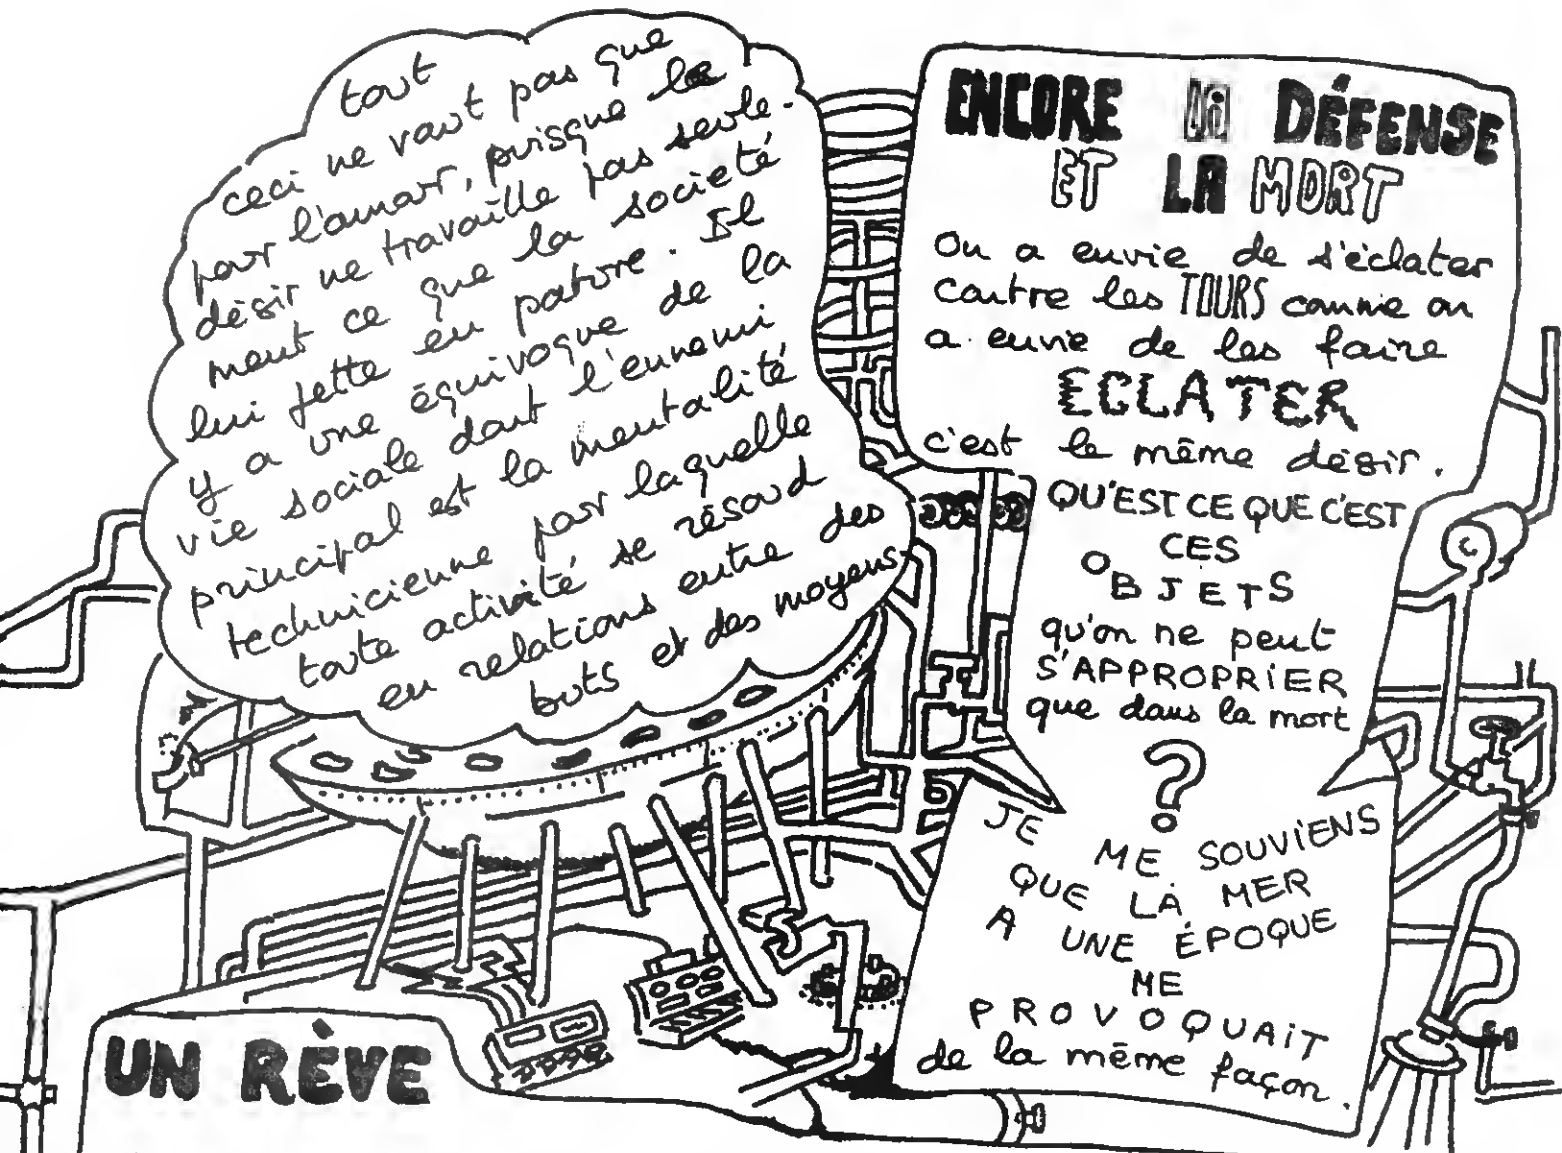 tout
ceci ne vaut pas que
pour l'amour, puisque le
désir ne travaille pas seule-
ment ce que la société
lui jette en pature. Il
y a une équivoque de la
vie sociale dont l'ennemi
principal est la mentalité
technicienne par laquelle
toute activité se résoud
en relations entre des
buts et des moyens
ENCORE DÉFENSE
ET LA MORT
On a envie de s'éclater
contre les TOURS comme on
a envie de les faire
ECLATER
c'est le même desir.
QU'EST CE QUE C'EST
CES
OBJETS
qu'on ne peut
S'APPROPRIER
que dans la mort
?
JE ME SOUVIENS
QUE LA MER
A UNE ÉPOQUE
ME
PROVOQUAIT
de la même façon.
UN RÈVE